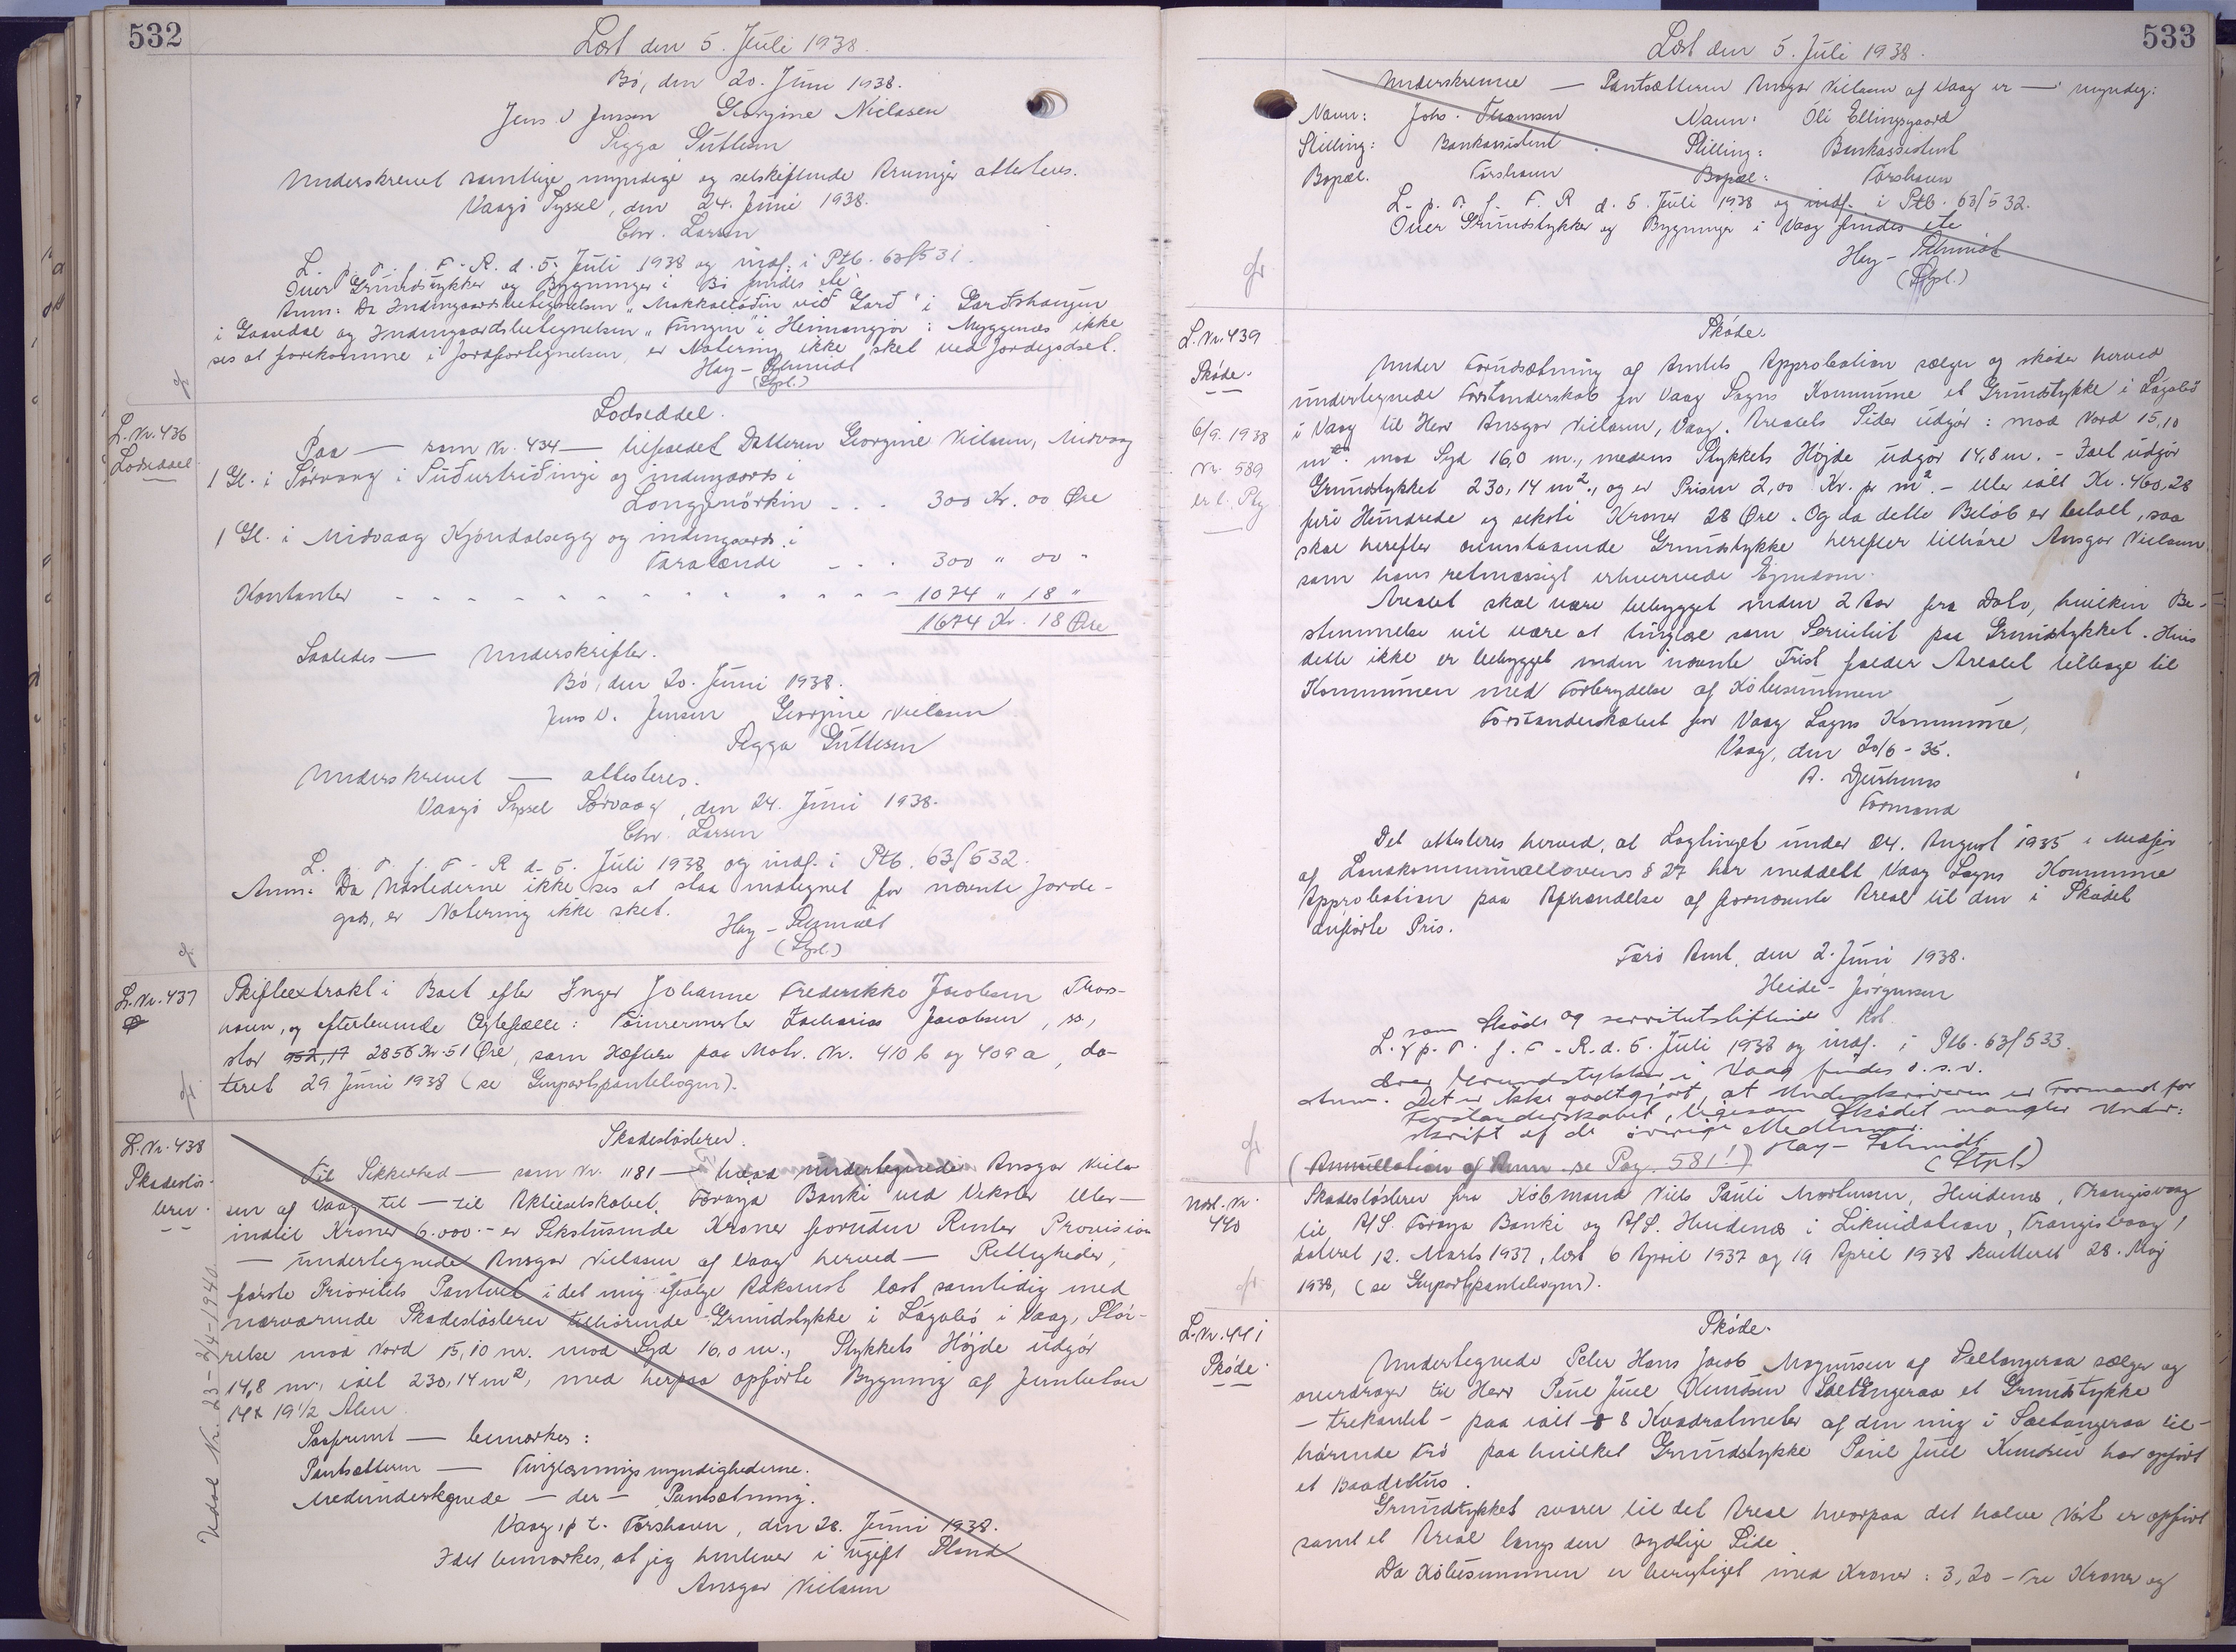 532
Læst den 5. Juli 1938.
Bø, den 20. Juni 1938.
Jens V Jensen Georgine Nielasen
Sigga Guttesen
Underskrevet samtlige myndige og selvskiftende Arvinger attesteres.
Vaagø Syssel, den 24. Juni 1938.
Chr. Larsen
L. p. T. f. F. R. d. 5. Juli 1938 og indf. i Ptb. 63/531.
Over Grundstykker og Bygninger i Bø findes ete
Anm: Da Indengaardsbetegnelsen "Makkalodin við Garð" i Garðshaugen
i Gaasedal og Indengaardsbetegnelsen "Tungun" i Heimangjór i Myggenæs ikke
ses at forekomme i Jordfortegnelsen, er Notering ikke sket ved Jordegodset.
Hay-Schmidt
(Stpl.)
L. Nr. 436
Lodseddel
Lodseddel.
Paa — som Nr. 434 — tilfaldet Datteren Georgine Nielasen, Midvaag
1 Gl. i Sørvaag i Suðurtriðingi og indengaards i
Longjunørkin - - - 300 Kr. 00 Øre
1 Gl. i Midvaag Kjøndalsegg og indengaards i
Taralændi - - - 300 " 00 "
Kontanter - - - - - - - - - - - - 1074 " 18 "
1674 Kr. 18 Øre
Saaledes — Underskrifter.
Bø, den 20. Juni 1938.
Jens V. Jensen Georgine Nielasen
Sigga Guttesen
Underskrevet — attesteres.
Vaagø Syssel Sørvaag, den 24. Juni 1938.
Chr. Larsen
L. p. T. f. F. R d. 5. Juli 1938 og indf. i Ptb. 63/532.
Anm: Da Vaslederne ikke ses at staa indtegnet for nævnte Jorde-
gods, er Notering ikke sket.
Hay-Schmidt
(Stpl.)
L. Nr. 437
Skifteextrakt i Boet efter Inger Johanne Frederikke Jacobsen Thors-
havn, og efterlevende Ægtefælle: Tømrermester Zacharias Jacobsen,
stor 952,17 2856 Kr. 51 Øre, som Hæftere paa Matr. Nr. 410 b og 409 a, da-
teret 29 Juni 1938 (se Genpartspantebogen).
L. Nr. 438
Skadesløs-
brev.
Skadesløsbrev.
Til Sikkerhed — som Nr. 1181 — hvad undertegnede Ansgar Niela-
sen af Vaag til — til Aktieselskabet Føroya Banki ved Veksler eller —
indtil Kroner 6.000.- er Sekstusinde Kroner foruden Renter Provision
— undertegnede Ansgar Nielasen af Vaag herved — Rettigheder,
første Prioritets Panteret i det mig ifølge Adkomst læst samtidig med
nærværende Skadesløsbrev tilhørende Grundstykke i Lágabø i Vaag, Stør-
relse mod Nord 15,10 m. mod Syd 16,0 m., Stykkets Højde udgør
14,8 m, ialt 230,14 m², med herpaa opførte Bygning af Jernbeton
14 x 19½ Alen.
Saafremt — bemærkes:
Pantsætteren — Tinglæsningsmyndighederne.
Medundertegnede — der — Pantsætning.
Vaag, p t. Torshavn, den 28. Juni 1938.
Idet bemærkes, at jeg henlever i ugift Stand
Ansgar Nielasen
Udsl. Nr. 23-2/4-1940
533
Læst den 5. Juli 1938.
Underskrevne — Pantsætteren Ansgar Nielasen af Vaag er — myndig:
Navn: Johs. Thomsen Navn: Óli Ellingsgaard
Stilling: Bankassistent Stilling: Bankassistent
Bopæl. Torshavn Bopæl: Torshavn
L. p. T. f. F. R d. 5. Juli 1938 og indf. i Ptb. 63/532.
Over Grundstykker og Bygninger i Vaag findes ete
Hay-Schmidt
(Stpl.)
L. Nr. 439
Skøde.
6/9. 1938
Nr. 589
Skøde.
Under Forudsætning af Amtets Approbation sælger og skøder herved
undertegnede Forstanderskab for Vaag Sogns Kommune et Grundstykke i Lágabø
i Vaag til Herr Ansgar Nielasen, Vaag. Arealets Sider udgør: mod Nord 15,10
m. mod Syd 16,0 m., medens Stykkets Højde udgør 14,8 m. - Ialt udgør
Grundstykket 230,14 m²., og er Prisen 2,00 Kr. pr m². - eller ialt Kr. 460,28
fire Hundrede og seksti Kroner 28 Øre. Og da dette Beløb er betalt, saa
skal herefter ovenstaaende Grundstykke herefter tilhøre Ansgar Nielasen
som hans retmæssigt erhvervede Ejendom.
Arealet skal være bebygget inden 2 Aar fra Dato, hvilken Be-
stemmelse vil være at tinglæse som Servitut paa Grundstykket. Hvis
dette ikke er bebygget inden nævnte Frist falder Arealet tilbage til
Kommunen med Fortrydelse af Købesummen
Forstanderskabet for Vaag Sogns Kommune,
Vaag, den 20/6-35.
A. Djurhuus
Formand
Det attesteres herved, at Lagtinget under 24. August 1935 i Medfør
af Landskommunallovens § 27 har meddelt Vaag Sogns Kommune
Approbation paa Afhændelse af fornævnte Areal til den i Skødet
anførte Pris.
Færø Amt, den 2. Juni 1938.
Heide-Jørgensen
som Skøde og servitutstiftende
L. p. T. f. F. R. d. 5. Juli 1938 og indf. i Ptb. 63/533.
Over Grundstykker i Vaag findes o. s. v.
Anm. Det er ikke godtgjort, at Underskriveren er Formand for
Forstanderskabet, ligesom Skødet mangler Under-
skrift af de øvrige Medlemmer.
Hay-Schmidt
(Stpl.)
(Annullation af Anm. se Pag. 581!)
Nr.
440
Skadesløsbrev fra Købmand Niels Pauli Mortensen, Hvidenæs, Trangisvaag
til A/S. Føroya Banki og A/S. Hvidenæs i Likvidation, Trangisvaag,
dateret 12. Marts 1937, læst 6 April 1937 og 19 April 1938 kvitteret 28. Maj
1938, (se Genpartspantebogen).
L. Nr. 441
Skøde.
Skøde.
Undertegnede Peter Hans Jacob Magnussen af Saltangeraa sælger og
overdrager til Herr Poul Juel Knudsen Saltangeraa et Grundstykke
- trekantet - paa ialt 8 Kvadratmeter af den mig i Saltangeraa til-
hørende Trø paa hvilket Grundstykke Poul Juel Knudsen har opført
et Baadehus.
Grundstykket svarer til det Areal hvorpaa det halve Nóst er opført
samt et Areal langs den sydlige Side
Da Købesummen er berigtiget med Kroner: 3,20 - Tre Kroner og